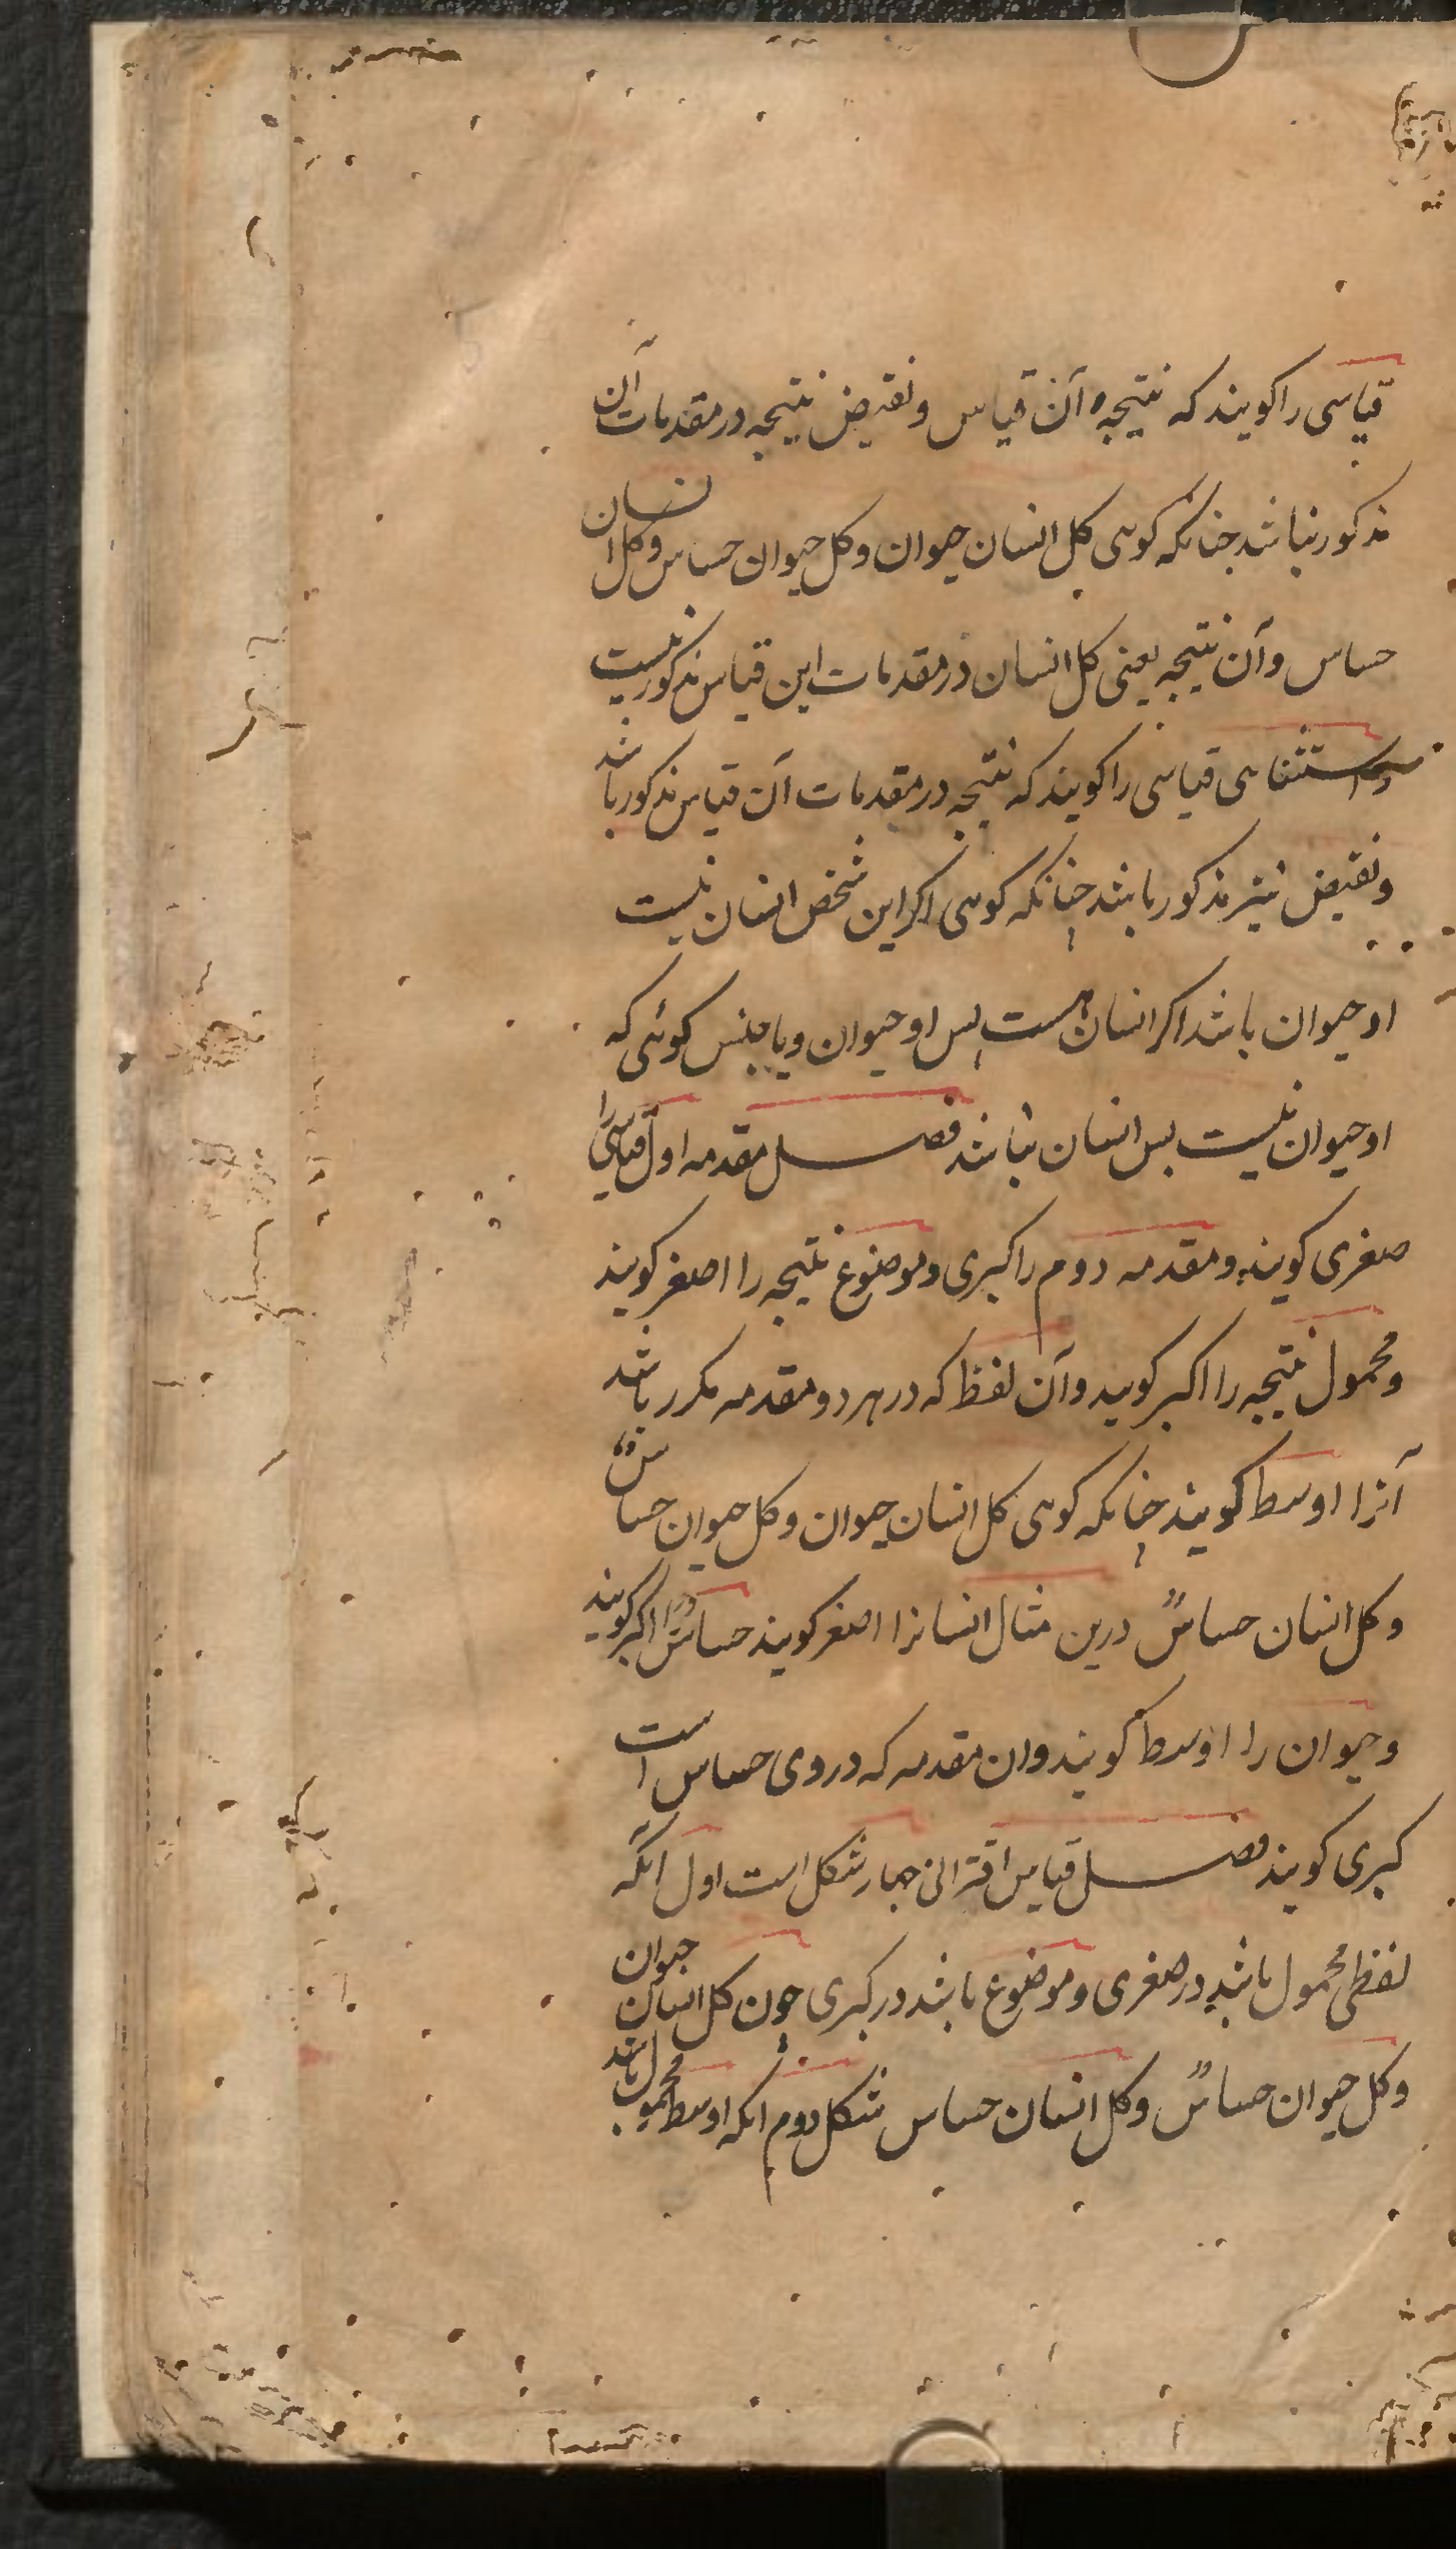 قیاسی را کویند که نتیجه آن قیاس و نقیض نتیجه در مقدمات آن
مذکور نباشد جنانکه کوہی کل انسان حیوان و کل حیوان حساس و کل انسان
حساس و آن نتیجه یعنی کل انسان در مقدمات این قیاس مذکور نیست
و استثناهی قیاسی را کویند که نتیجه در مقدمات آن قیاس مذکور باشد
و نقیض نیز مذکور باشد جنانکه کوہی اکر این شخص انسان نیست
او حیوان باشد اکر انسان هست پس او حیوان و یا جنس کوئی که
او حیوان نیست پس انسان نباشد فصل مقدمه اول قیاسی را
صغری کویند و مقدمه دوم را کبری و موضوع نتیجه را اصغر کویند
و محمول نتیجه را اکبر کویند و آن لفظ که در هر دو مقدمه مکرر باشد
آنرا اوسط کویند جنانکه کوہی کل انسان حیوان و کل حیوان حساسٌ
و کل انسان حساسٌ درین مثال انسانرا اصغر کویند حساسٌ را اکبر کویند
و حیوان را اوسط کویند وان مقدمه که در وی حساس است
کبری کویند فصل قیاس اقترانی جهار شکل است اول آنکه
لفظی محمول باشد در صغری و موضوع باشد در کبری جون کل انسان حیوان
و کل حیوان حساسٌ و کل انسان حساس شکل دوم انکه اوسط محمول باشد